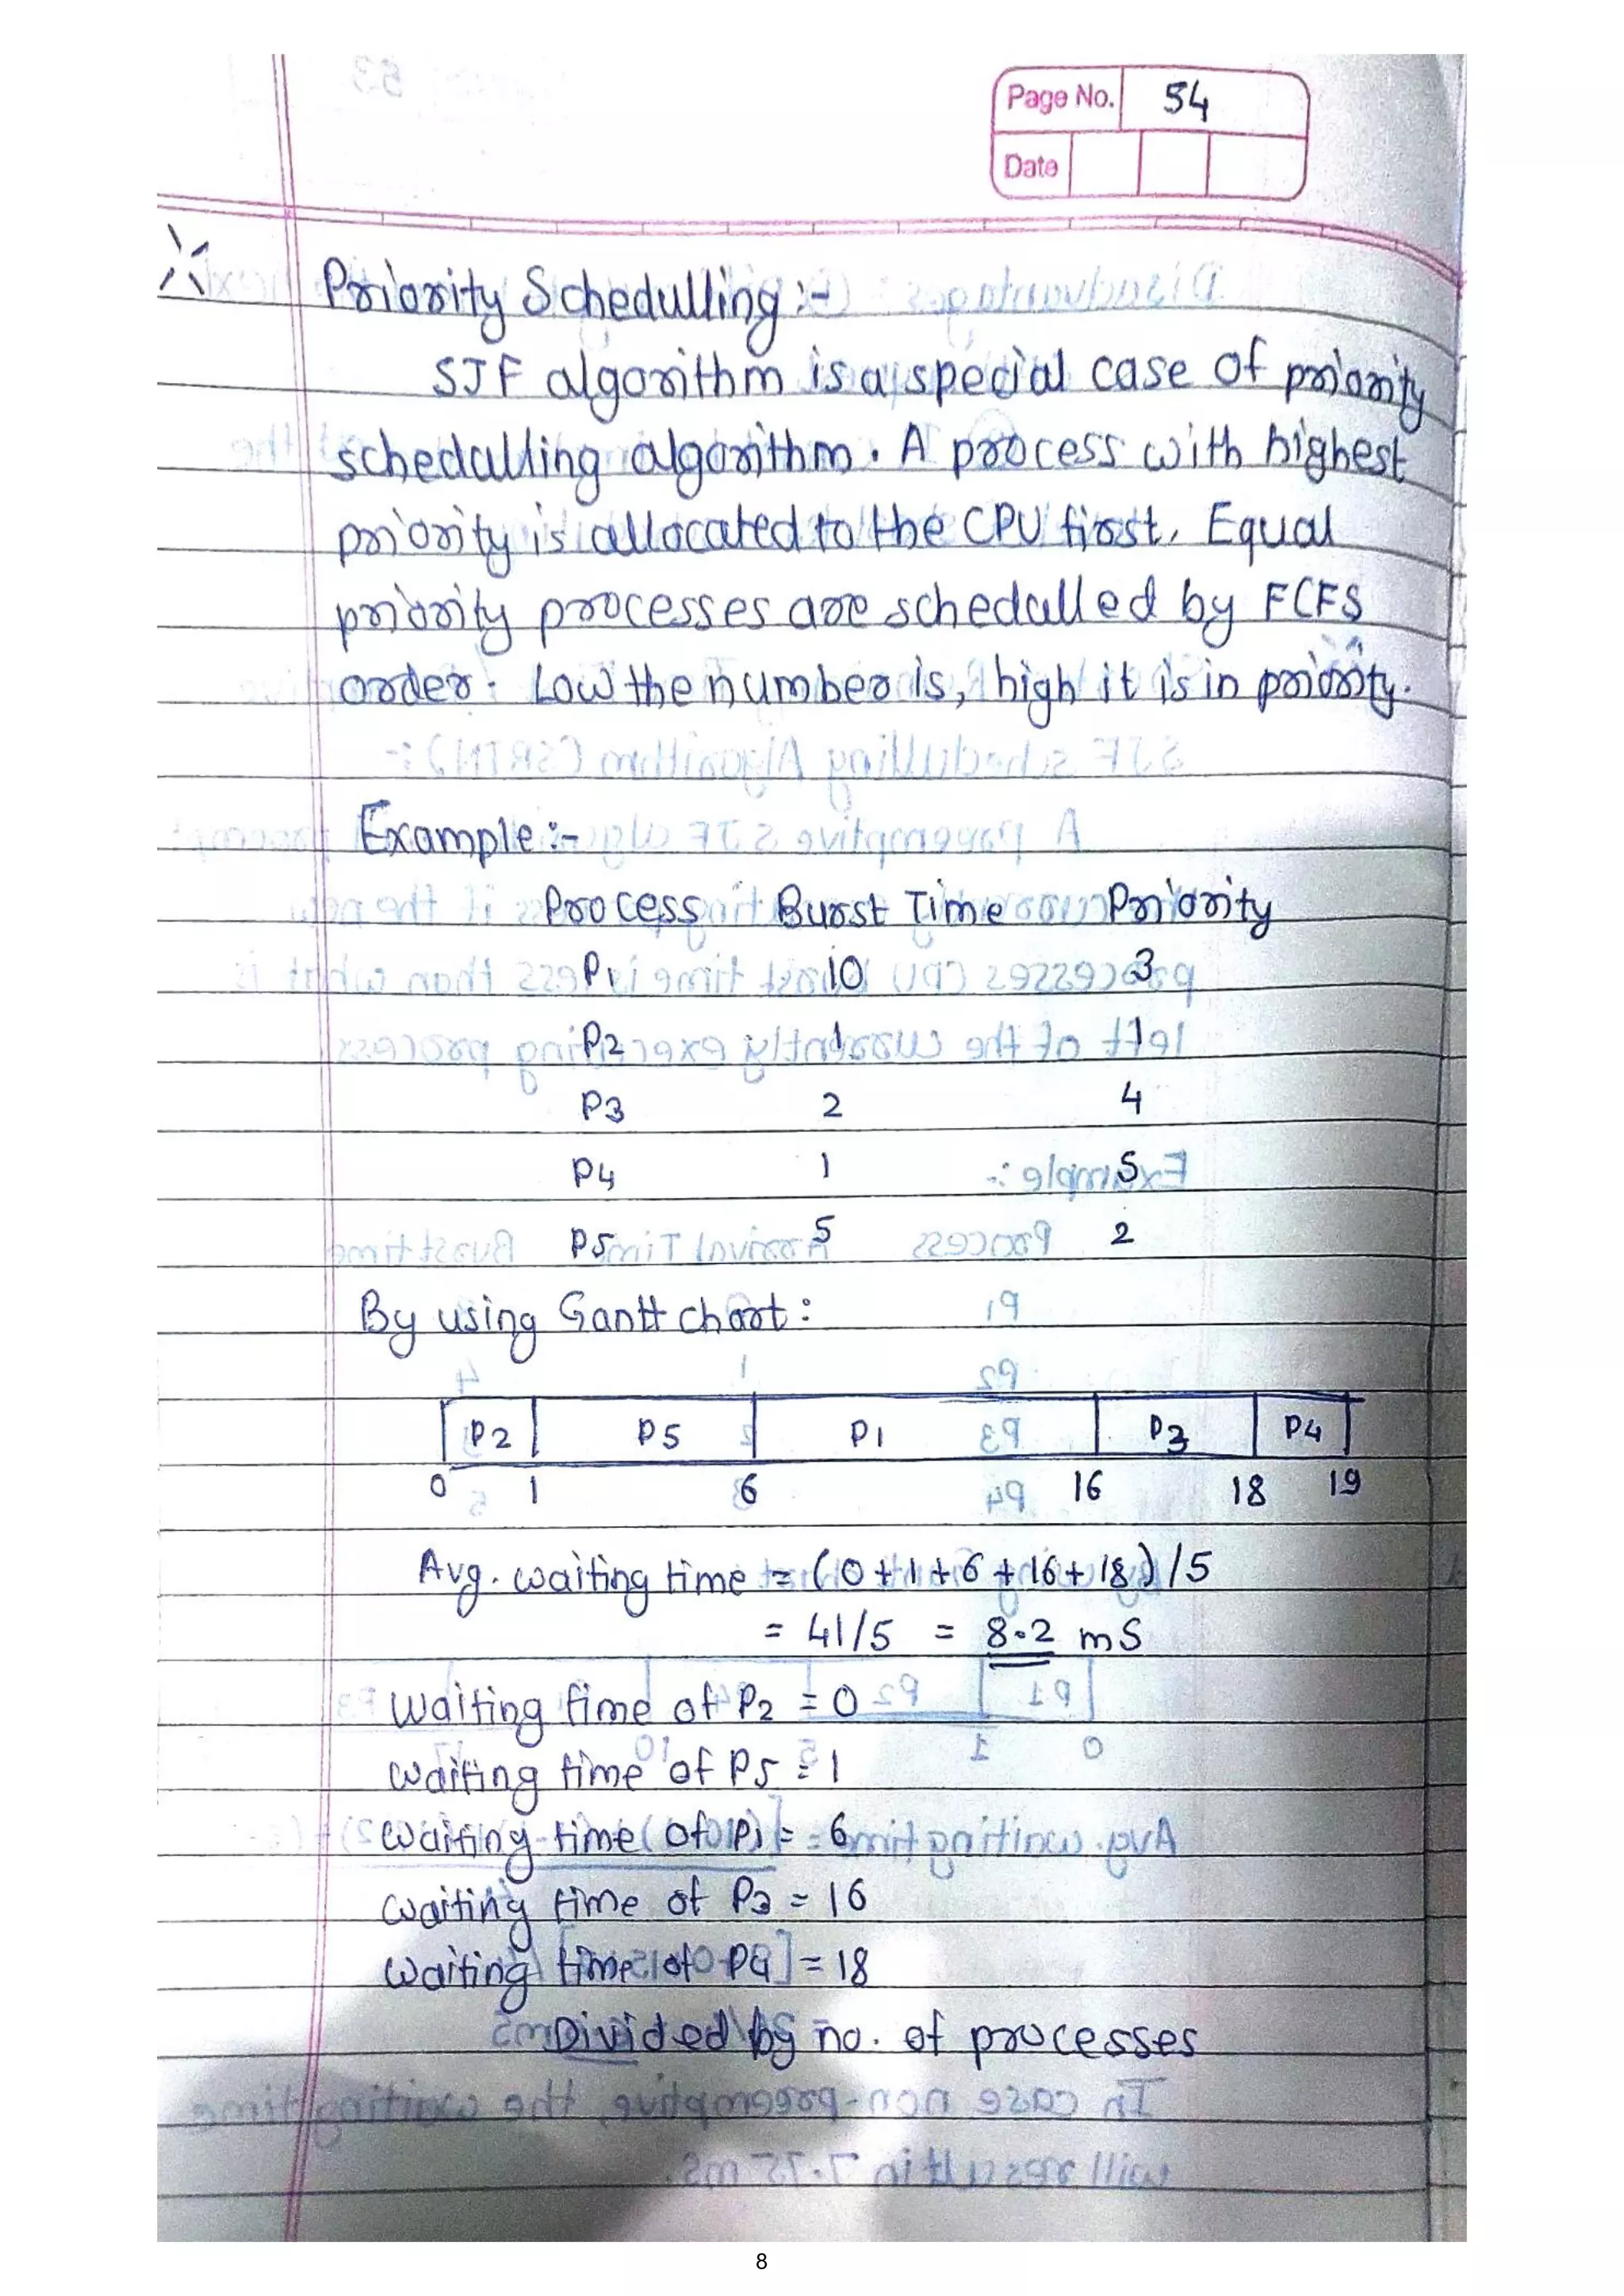 Page No. 54
Date
Priority Schedulling :-
SJF algorithm is a special case of priority
schedulling algorithm. A process with highest
priority is allocated to the CPU first. Equal
priority processes are schedulled by FCFS
order. Low the number is, high it is in priority.
Example :-
Process Burst Time Priority
P1 10 3
P2 1 1
P3 2 4
P4 1 5
P5 5 2
By using Gantt chart :
P2 P5 P1 P3 P4
0 1 6 16 18 19
Avg. waiting time = (0+1+6+16+18)/5
= 41/5 = 8.2 mS
Waiting time of P2 = 0
Waiting time of P5 = 1
Waiting time of P1 = 6
Waiting time of P3 = 16
Waiting time of P4 = 18
Divided by no. of processes
8